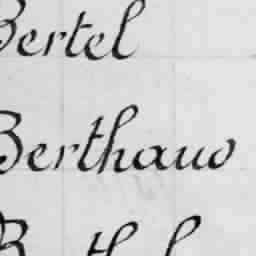 Bertel
Berthauo